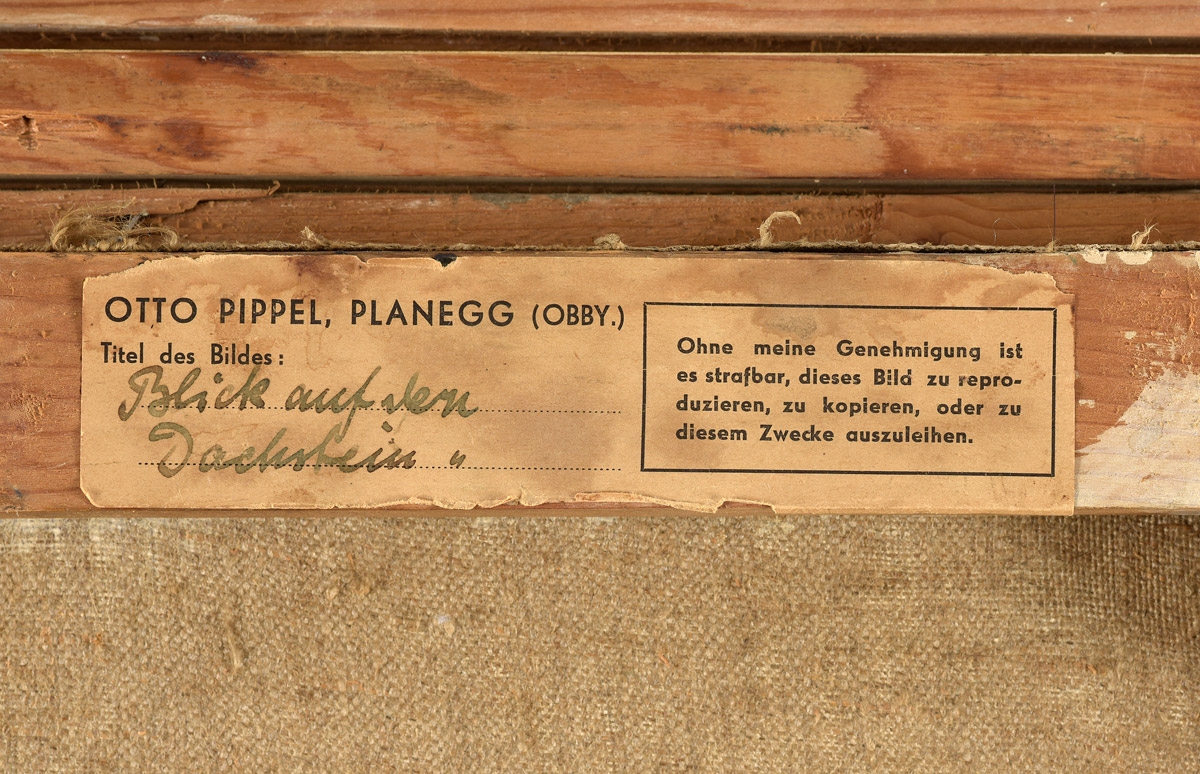 OTTO PIPPEL, PLANEGG (OBBY.)
Titel des Bildes:
Blick auf den
Dachstein "
Ohne meine Genehmigung ist
es strafbar, dieses Bild zu repro-
duzieren, zu kopieren, oder zu
diesem Zwecke auszuleihen.